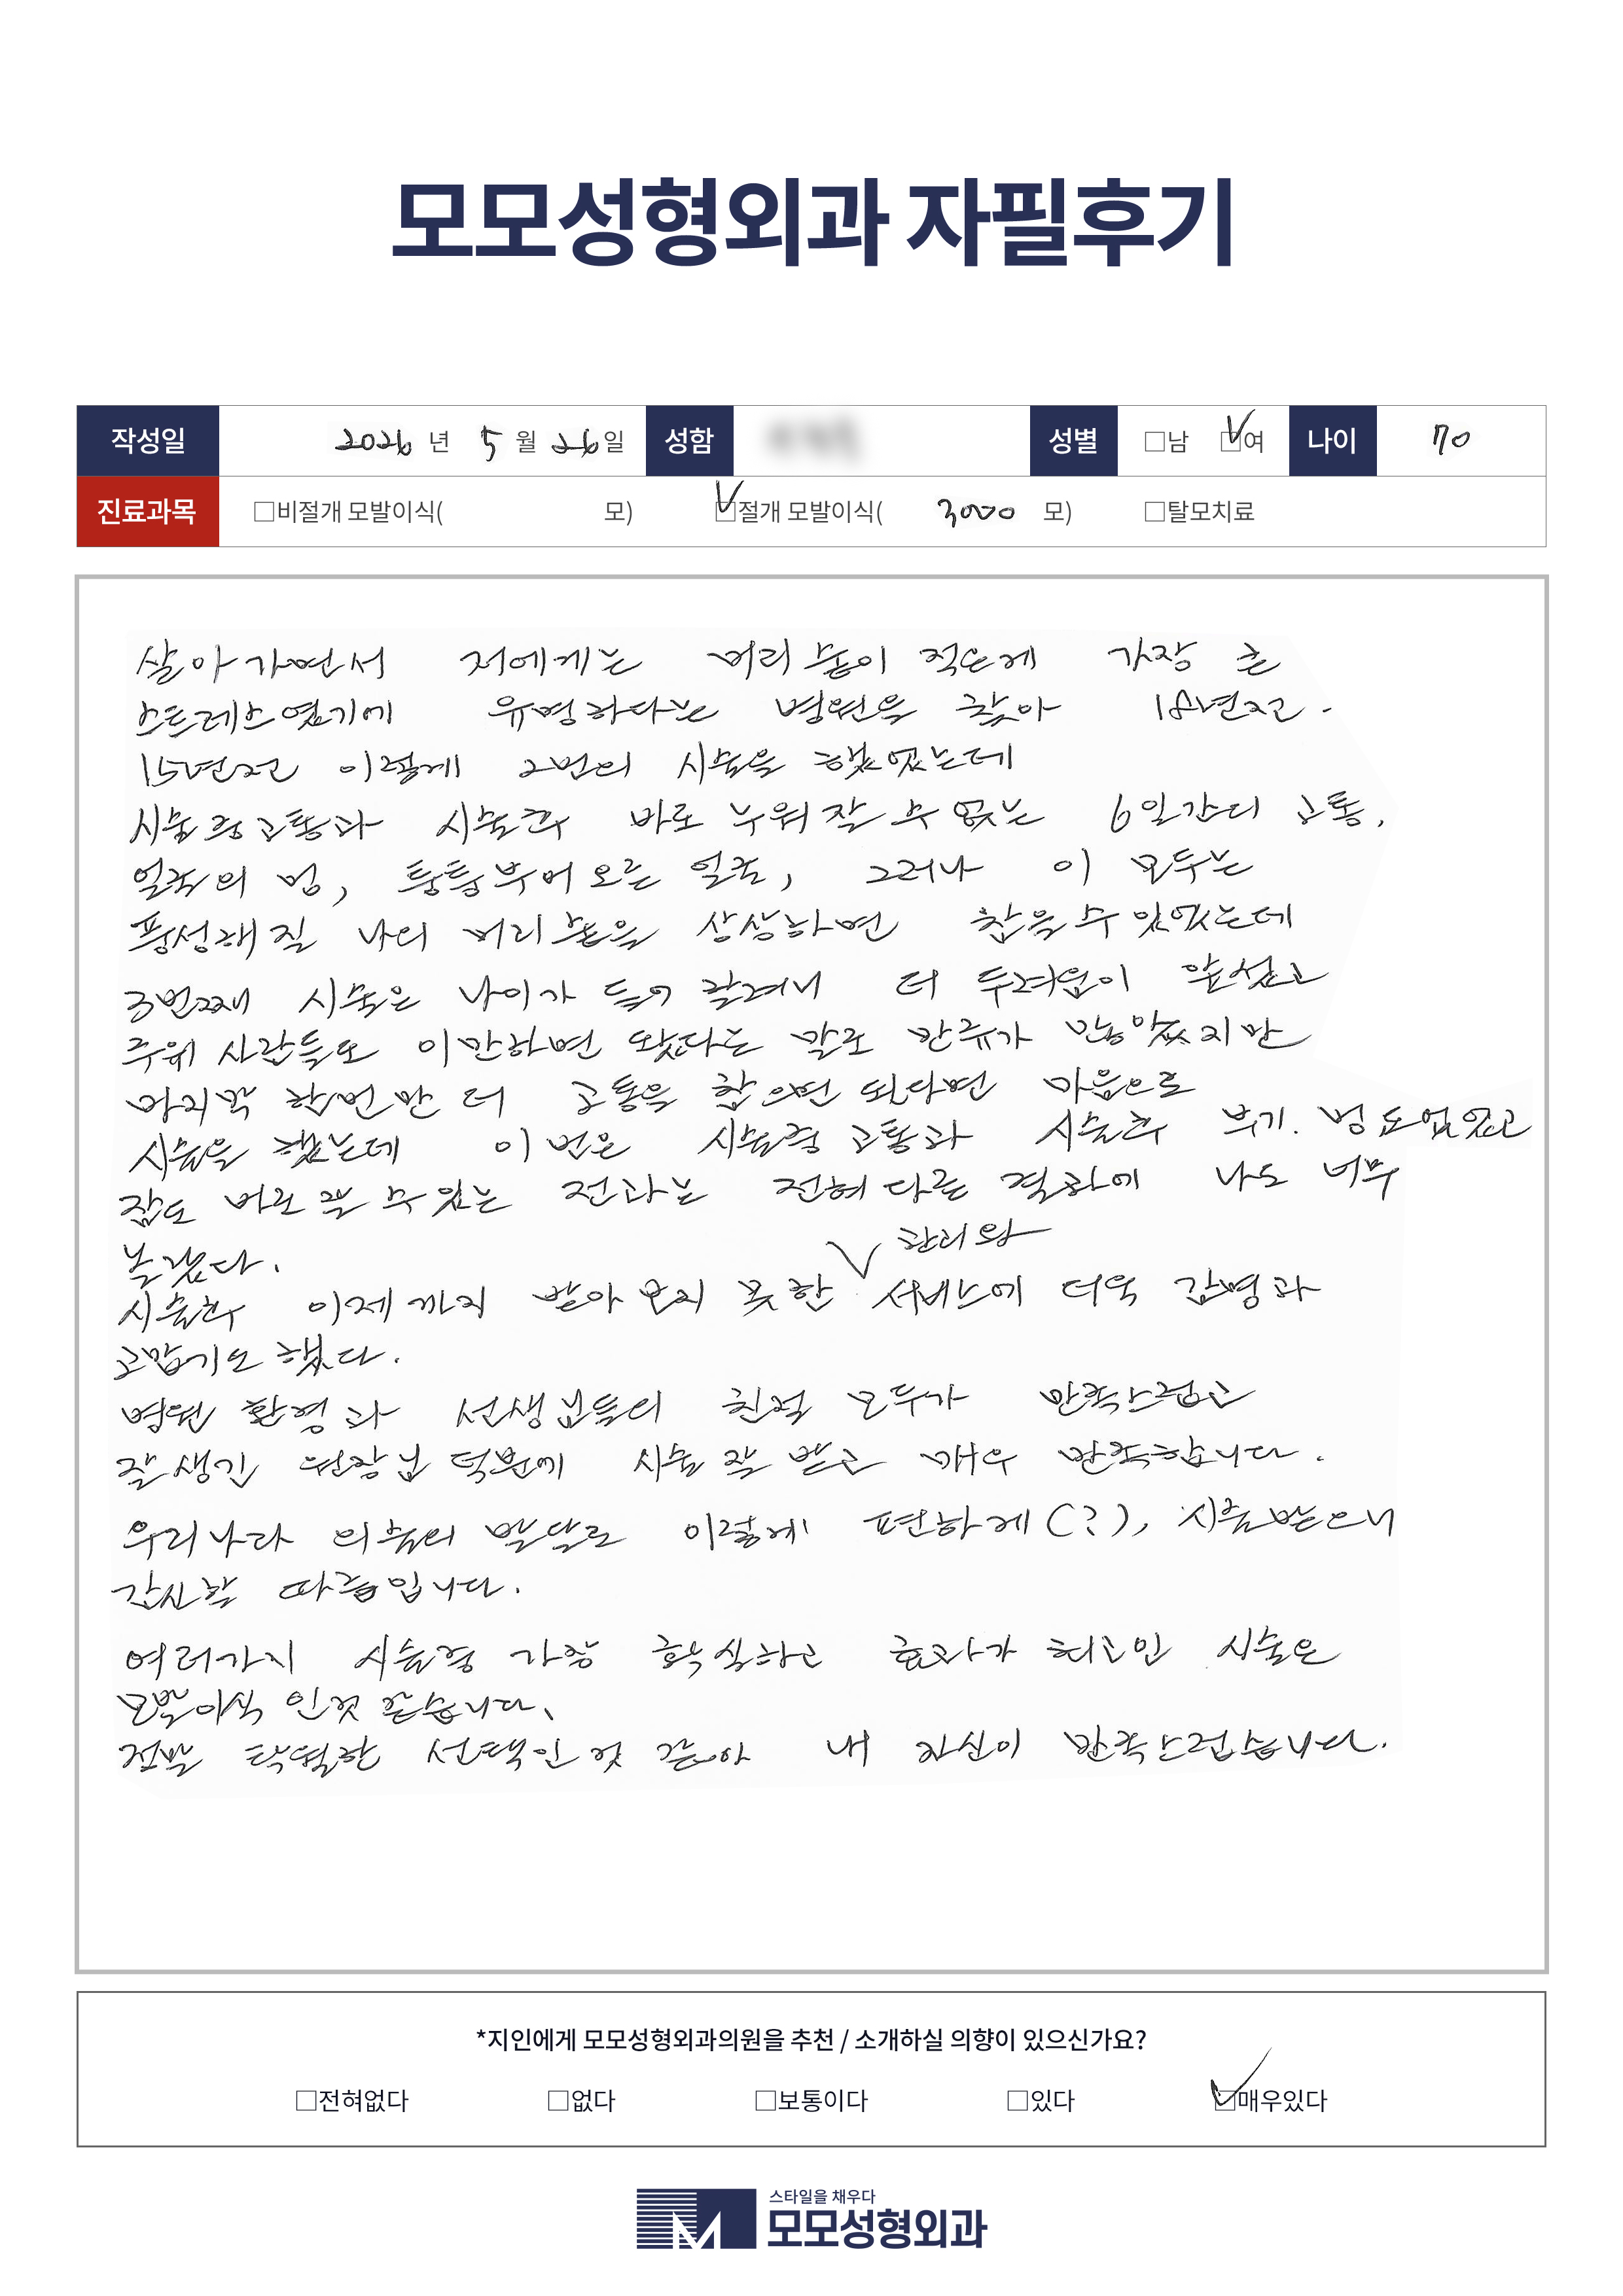 모모성형외과 자필후기
작성일 2026 년 5 월 26 일 성함 성별 □남 ☑여 나이 70
진료과목 □비절개 모발이식( 모) ☑절개 모발이식( 3000 모) □탈모치료
살아가면서 저에게는 머리 숱이 적은게 가장 큰
스트레스였기에 유명하다는 병원을 찾아 18년전.
15년전 이렇게 2번의 시술을 했었는데
시술중 고통과 시술후 바로 누워 잘 수 없는 6일간의 고통,
얼굴의 멍, 퉁퉁부어 오른 얼굴, 그러나 이 모두는
풍성해질 나의 머리 숱을 상상하면 참을 수 있었는데
3번째 시술은 나이가 들어 할려니 더 두려움이 앞섰고
주위 사람들도 이만하면 됐다는 말로 만류가 많았지만
마지막 한번만 더 고통을 참으면 된다면 마음으로
시술을 했는데 이번은 시술중 고통과 시술후 부기. 멍도 없었고
잠도 바로 잘 수 있는 전과는 전혀 다른 결과에 나도 너무
놀랬다.
관리와
시술후 이제까지 받아 보지 못한 ∨ 서비스에 더욱 감명과
고맙기도 했다.
병원 환경과 선생님들의 친절 모두가 만족스럽고
잘생긴 원장님 덕분에 시술 잘 받고 매우 만족합니다.
우리나라 의술의 발달로 이렇게 편하게(?), 시술받으니
감사할 따름입니다.
여러가지 시술중 가장 확실하고 효과가 최고인 시술은
모발이식 인것 같습니다.
정말 탁월한 선택인 것 같아 내 자신이 만족스럽습니다.
*지인에게 모모성형외과의원을 추천 / 소개하실 의향이 있으신가요?
□전혀없다 □없다 □보통이다 □있다 ☑매우있다
스타일을 채우다
모모성형외과